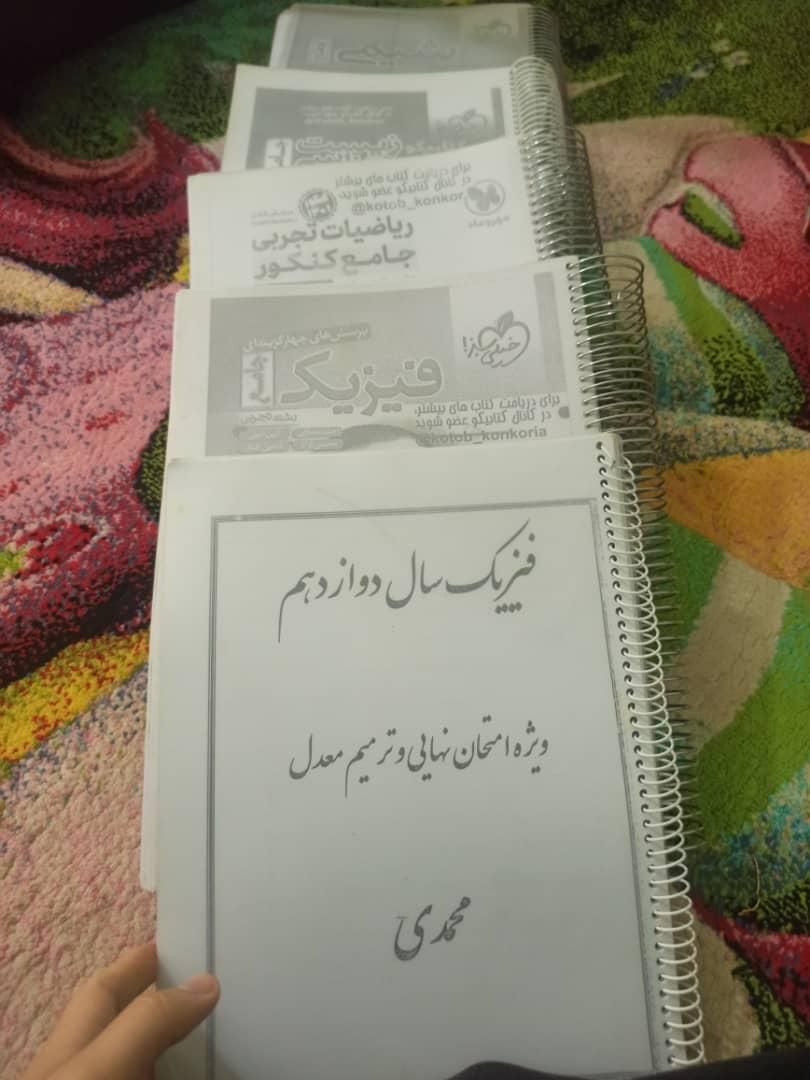 شیمی
زیست
برای دریافت کتاب های بیشتر
در کانال کتابیکو عضو شوید
@kotob_konkor
مهروماه
ریاضیات تجربی
جامع کنکور
پرسش‌های چهارگزینه‌ای
خیلی سبز!
جامع
فیزیک
رشته تجربی
برای دریافت کتاب های بیشتر،
در کانال کتابیکو عضو شوید
@kotob_konkoria
فیزیک سال دوازدهم
ویژه امتحان نهایی و ترمیم معدل
محمدی